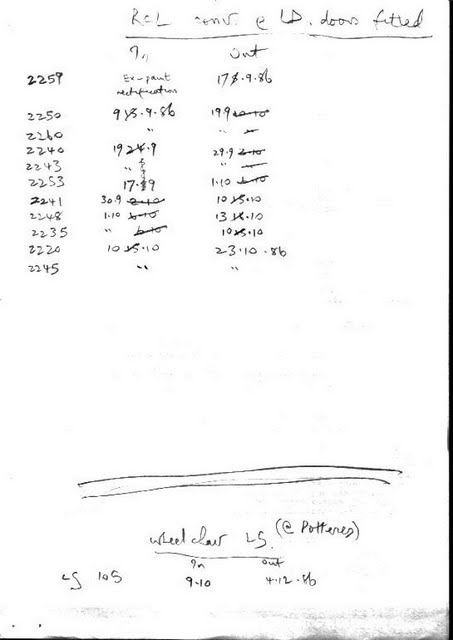 RCL conv. @ LS. doors fitted
In Out
2259 Ex-paint rectification 17.9.86
2250 9.9.86 19.9
2260 " "
2240 19.9 29.9
2243 " "
2253 17.9 1.10
2241 30.9 10.10
2248 1.10 13.10
2235 " 10.10
2220 10.10 23.10.86
2245 " "
wheelchair LS. (@ Potteres)
In Out
LS 105 9.10 4.12.86